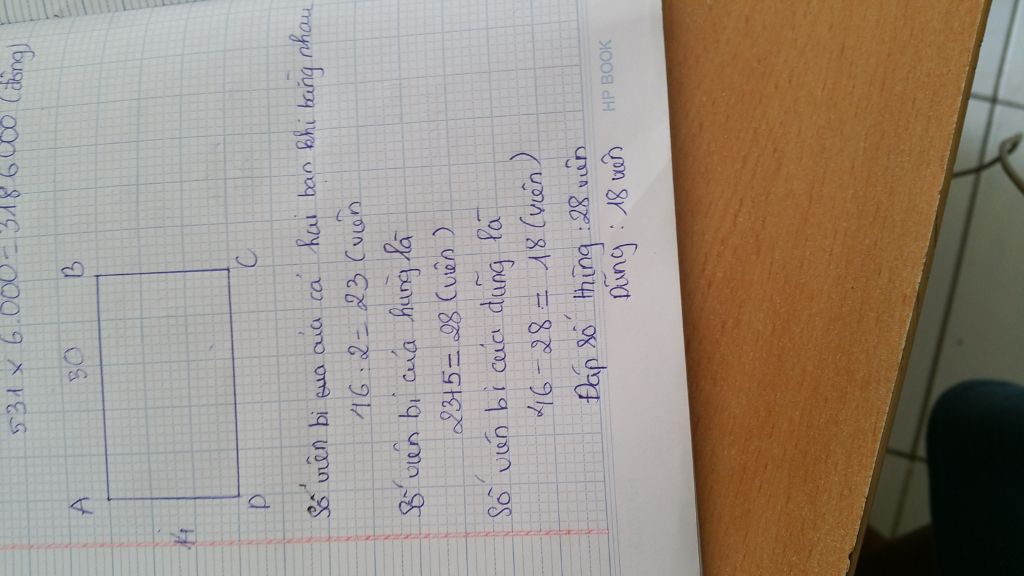 531 x 6.000 = 3186000 (đồng)
A 30 B
14
D C
Số viên bi của cả hai bạn khi bằng nhau
46 : 2 = 23 (viên
Số viên bi của hùng là
23+5 = 28 (viên)
Số viên bi của dũng là
46 - 28 = 18 (viên)
Đáp số hùng : 28 viên
Dũng : 18 viên
HP BOOK